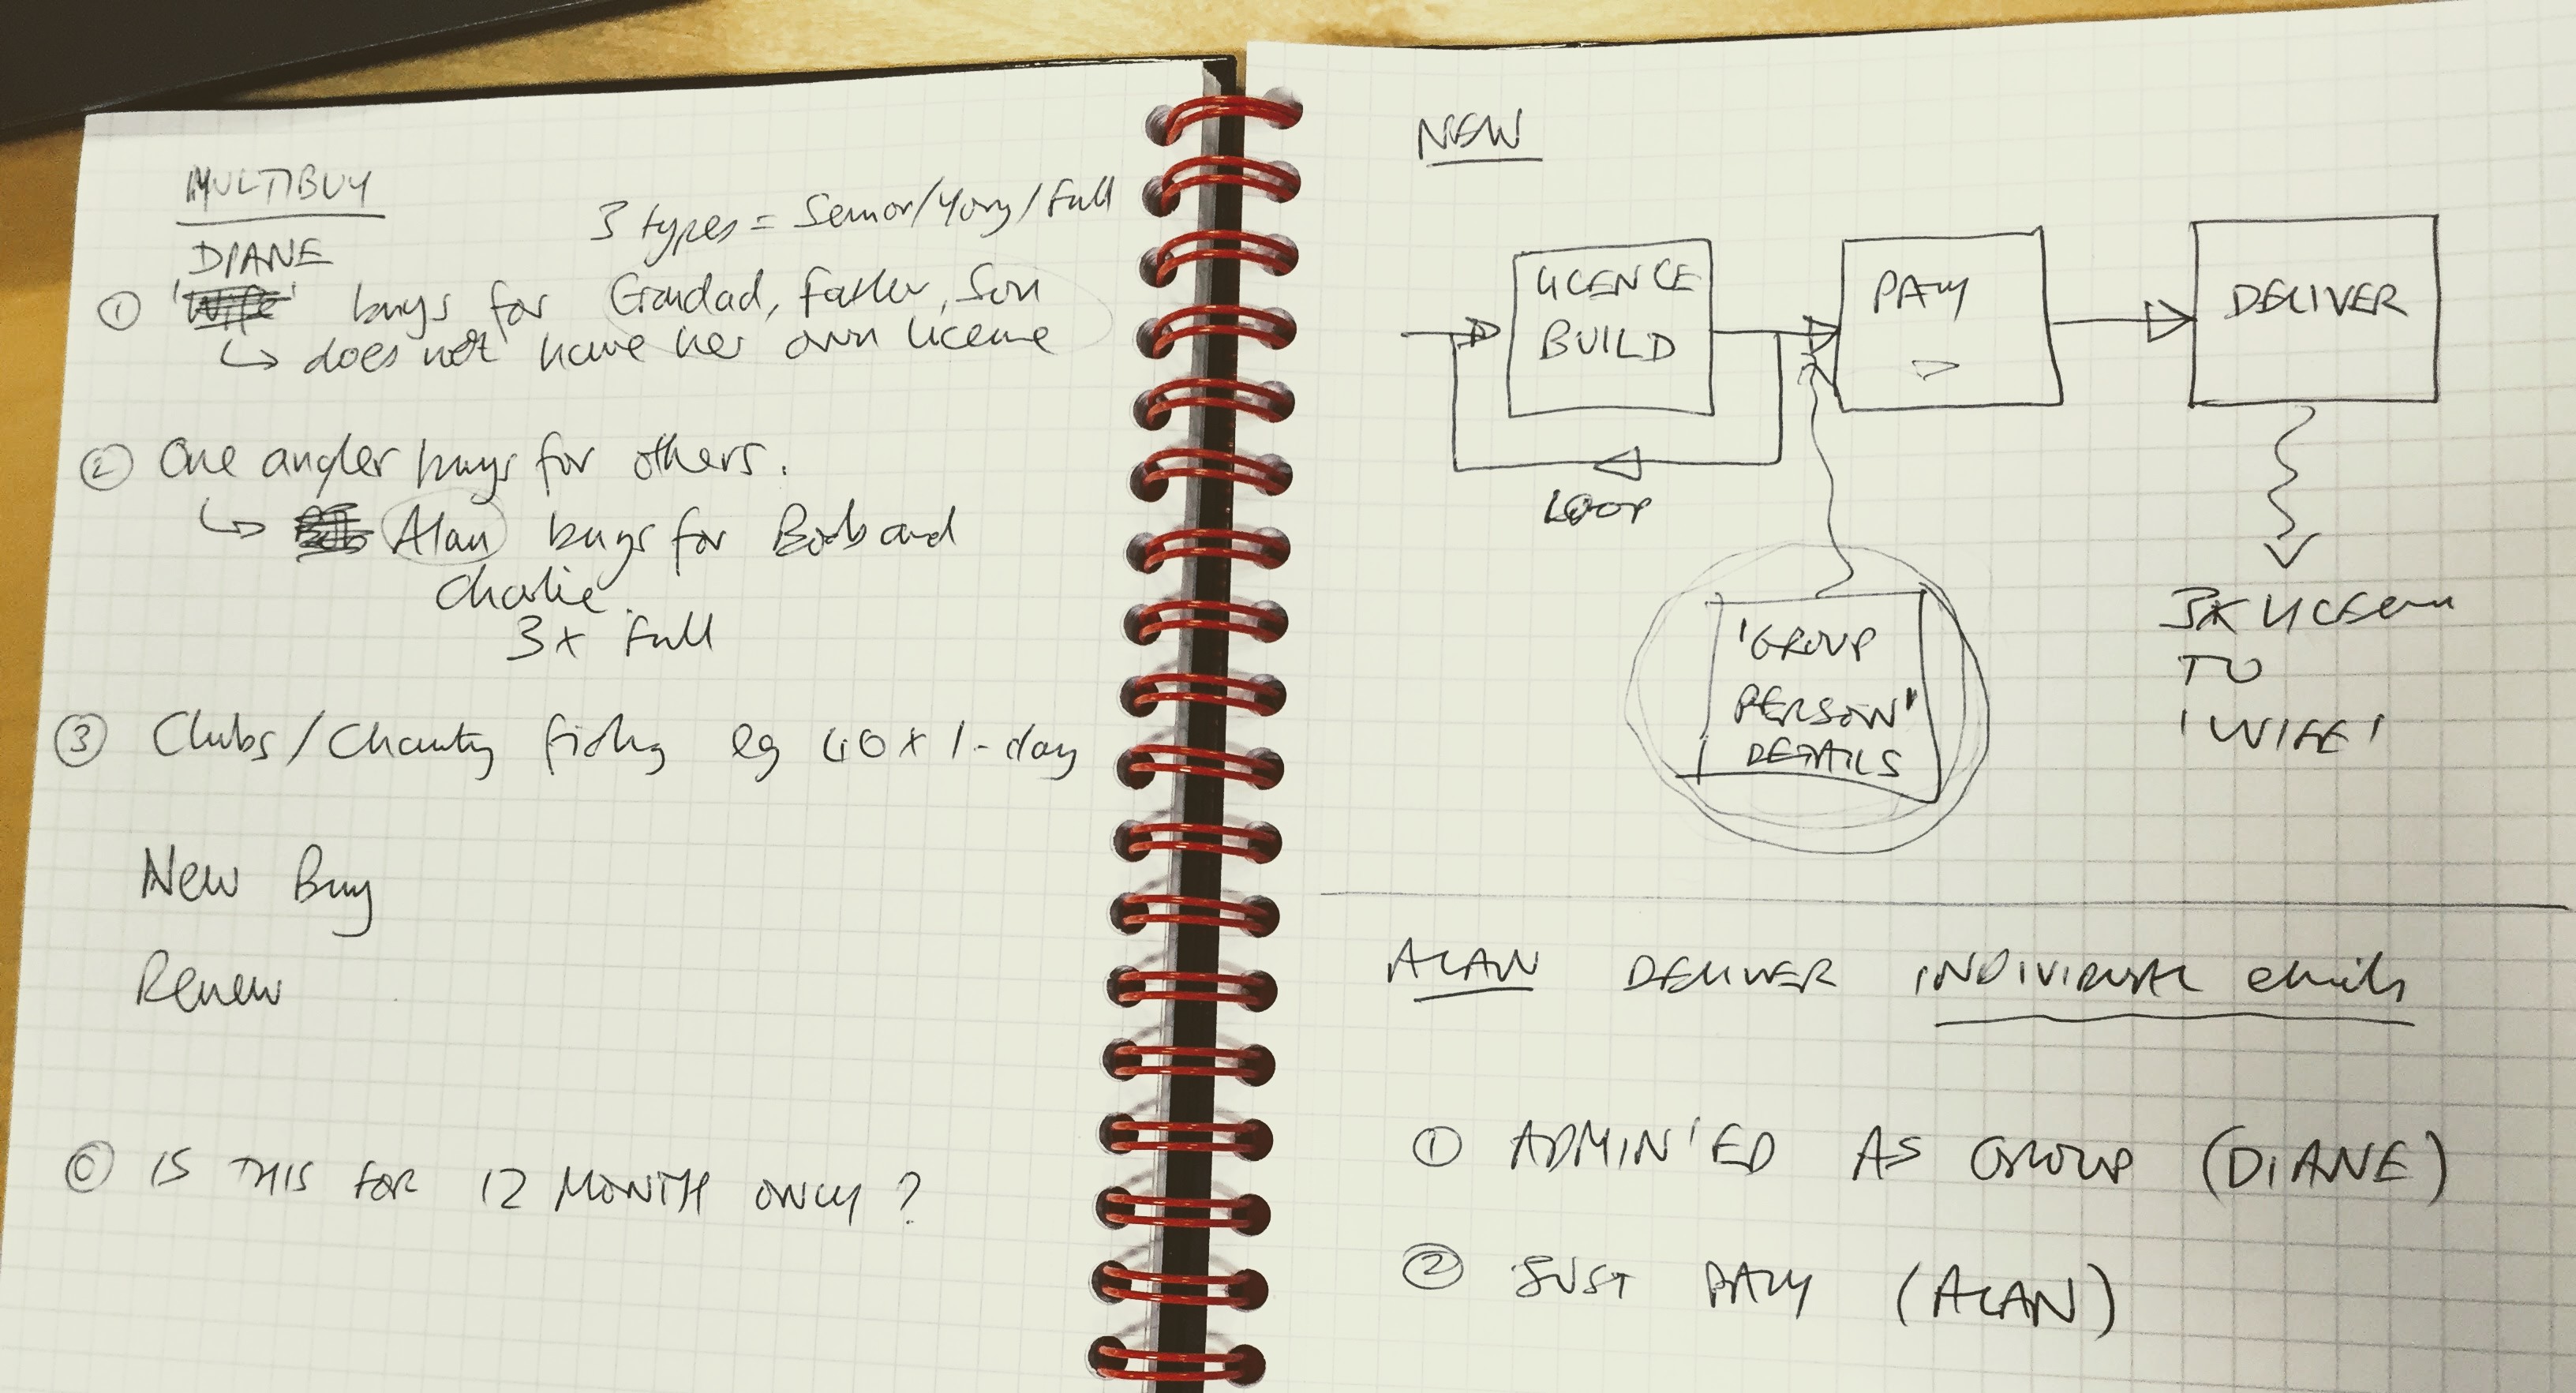 MULTIBUY
3 types = Senior/Yong/Full
DIANE
① 'Wife' buys for Grandad, Father, Son
↳ does not have her own licence
② One angler buys for others.
↳ Alan buys for Bob and
Charlie.
3x Full
③ Clubs/Charity fishg eg 40 x 1-day
New Buy
Renew
© IS THIS FOR 12 MONTH ONLY?
NEW
LICENCE
BUILD
PAY
DELIVER
LOOP
'GROUP
PERSON'
DETAILS
3x LICENCE
TO
'WIFE'
ALAN DELIVER INDIVIDUAL emails
① ADMIN'ED AS GROUP (DIANE)
② JUST PAY (ALAN)